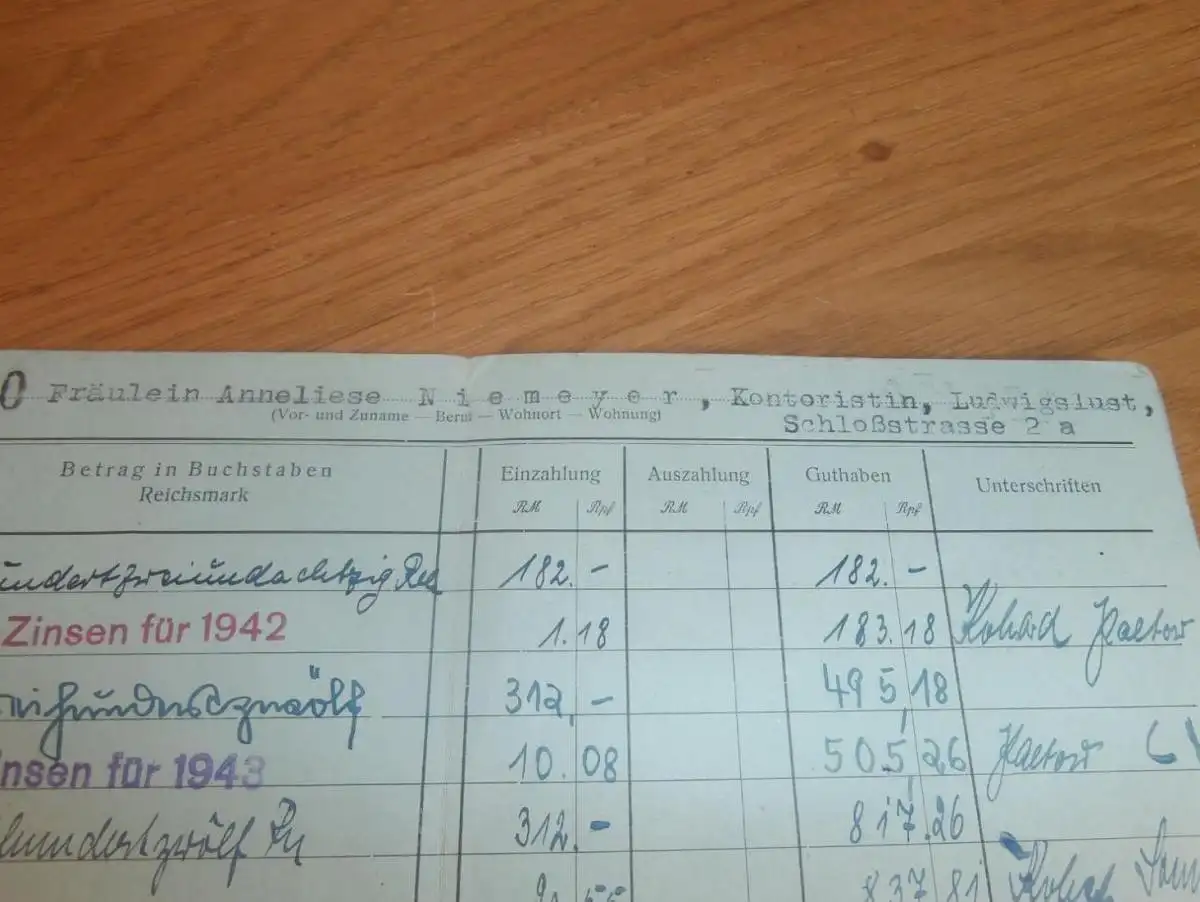 0 Fräulein Anneliese N i e m e y e r , Kontoristin, Ludwigslust,
(Vor- und Zuname — Beruf — Wohnort — Wohnung)
Schloßstrasse 2 a
Betrag in Buchstaben
Reichsmark
Einzahlung
Auszahlung
Guthaben
Unterschriften
RM Rpf RM Rpf RM Rpf
undertzweiundachtzig 182. – 182. –
Zinsen für 1942 1.18 183.18
eihundertzwölf 312, – 495,18
insen für 1943 10.08 505,26
hundertzwölf 312. – 817.26
837 81